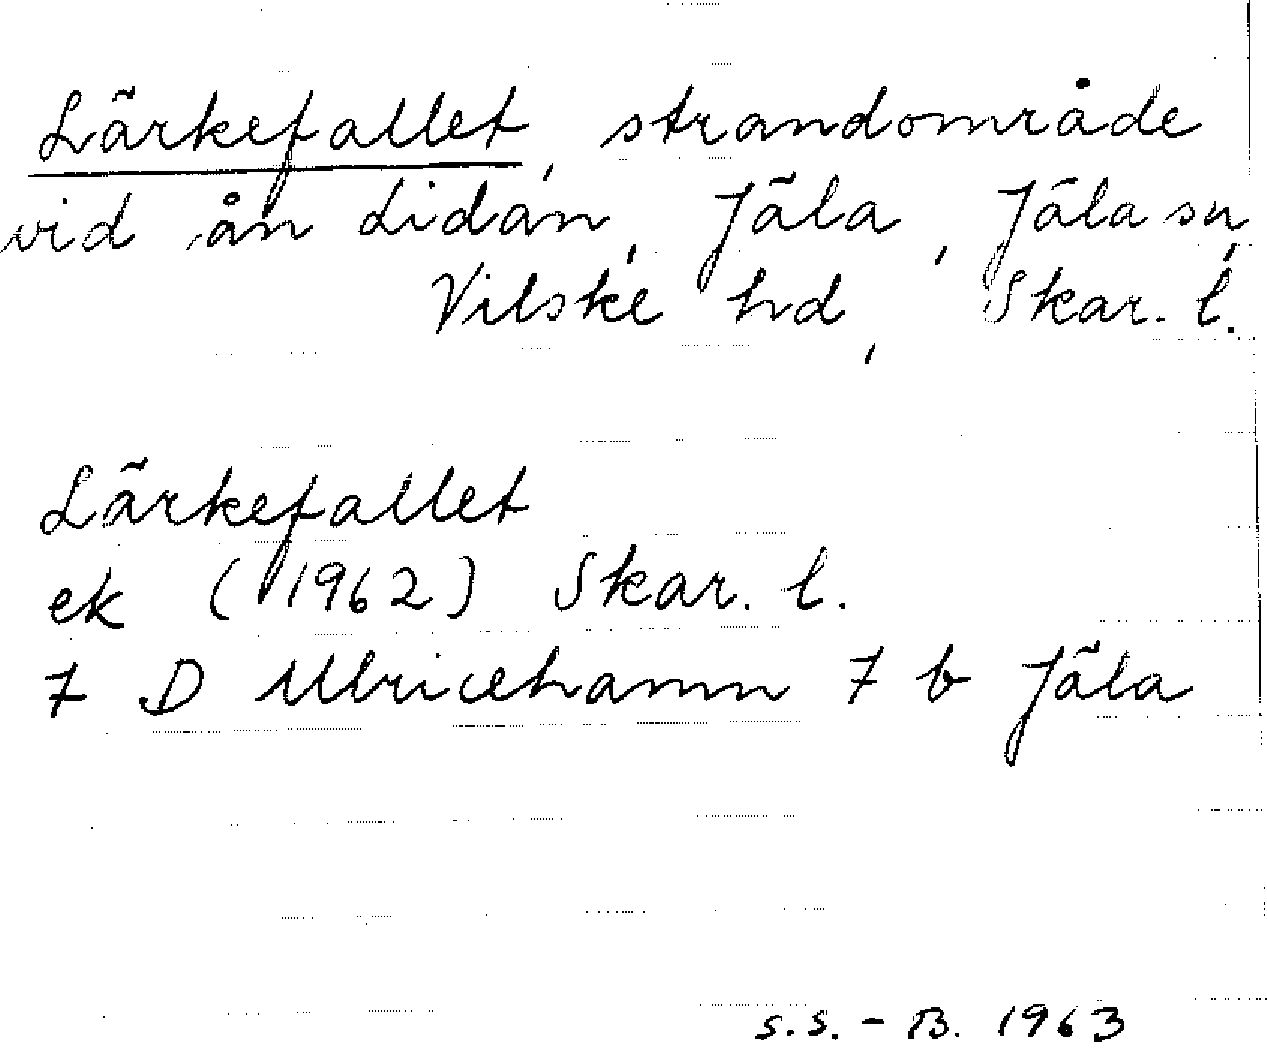 Lärkefallet, strandområde
vid ån Lidan, Jäla, Jäla sn,
Vilske hd, Skar. l.
Lärkefallet
ek (1962) Skar. l.
7 D Ulricehamn 7 b Jäla
S.S. - B. 1963